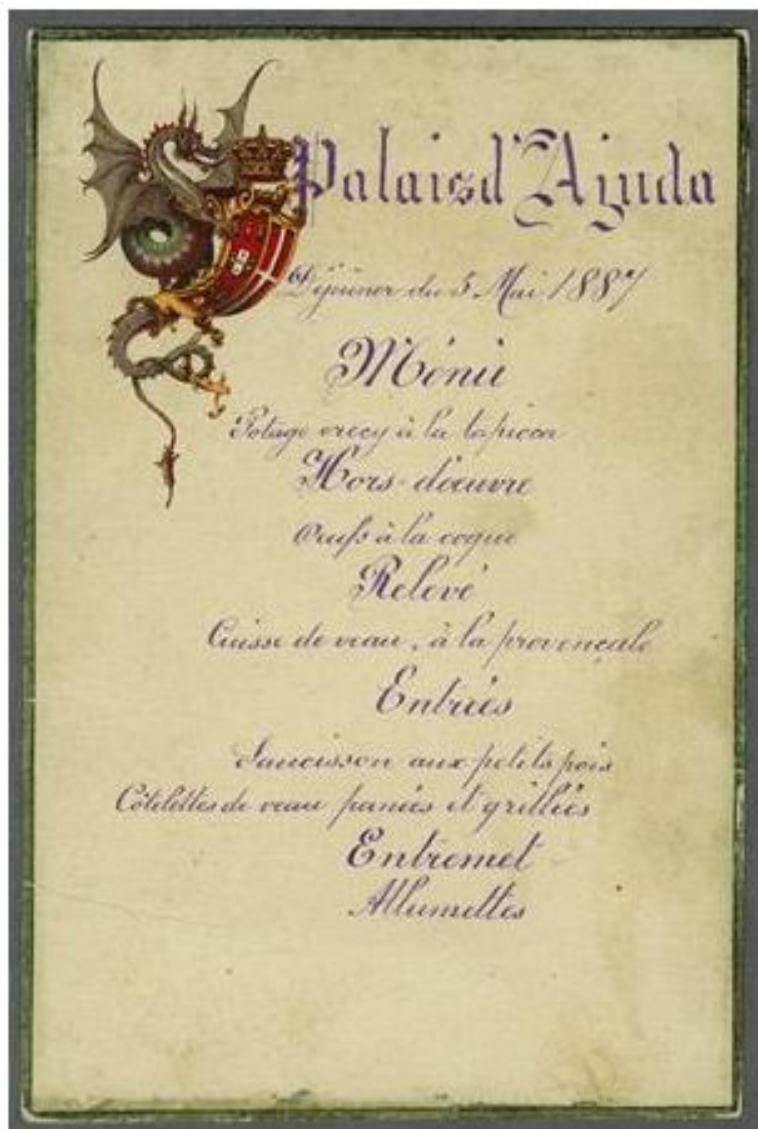 Palais d'Ajuda
Déjeuner du 5 Mai 1887
Ménu
Potage crecy à la tapioca
Hors-d'œuvre
Œufs à la coque
Relevé
Cuisse de veau, à la provençale
Entrées
Saucisson aux petits pois
Côtelettes de veau panées et grillées
Entremet
Allumettes